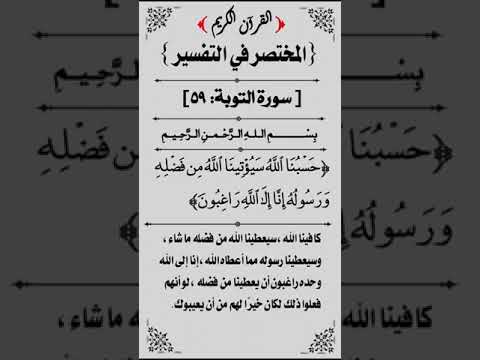 ﴿القرآن الكريم﴾
{المختصر في التفسير}
[ سورة التوبة: ٥٩ ]
بِسْمِ اللهِ الرَّحْمنِ الرَّحِيمِ
﴿حَسْبُنَا اللَّهُ سَيُؤْتِينَا اللَّهُ مِن فَضْلِهِ
وَرَسُولُهُ إِنَّا إِلَى اللَّهِ رَاغِبُونَ﴾
كافينا الله ، سيعطينا الله من فضله ما شاء ،
وسيعطينا رسوله مما أعطاه الله ، إنا إلى الله
وحده راغبون أن يعطينا من فضله ، لو أنهم
فعلوا ذلك لكان خيرًا لهم من أن يعيبوك.